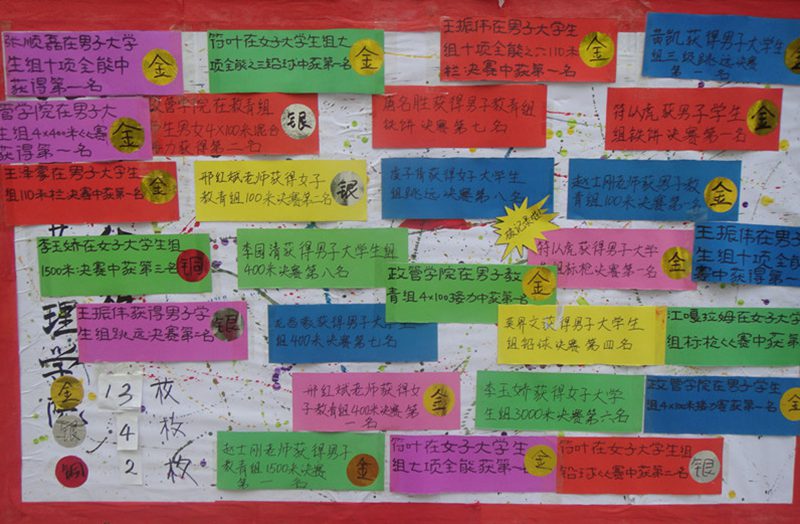 张顺磊在男子大学
生组十项全能中
获得第一名
金
符叶在女子大学生组七
项全能之三铅球中获第一名
金
王振伟在男子大学生
组十项全能之六110米
栏决赛中获第一名
金
黄凯获得男子大学生
组三级跳远决赛
第一名
金
管学院在男子大
生组4x400米决赛
获得第一名
金
政管学院在教青组
学生男女4x100米混合
接力获得第二名
银
胜获得男子教青组
铁饼决赛第七名
符认虎获男子大学生
组铁饼决赛第一名
金
王泽豪在男子大学生
组110米栏决赛中获第一名
金
邢红斌老师获得女子
教青组100米决赛第二名
银
获得男子大学生
组跳远决赛第八名
赵士刚老师获男子教
青组100米决赛第一名
金
破记录啦
李玉娇在女子大学生组
1500米决赛中获第三名
铜
李国清获得男子大学生组
400米决赛第八名
政管学院在男子教
青组4x100接力中获第一名
金
符认虎获得男子大学
组标枪决赛第一名
金
王振伟在男子大
组十项全能
中获得第
王振伟获得男子大学
生组跳远决赛第二名
银
获得男子大学生
组400米决赛第七名
英界文获得男子大学生
组铅球决赛第四名
江嘎拉姆在女子大学
组标枪决赛中获第
理学院
金
13
枚
银
4
枚
铜
2
枚
邢红斌老师获得女
子教青组400米决赛第
一名
金
李玉娇获得女子大学
生组3000米决赛第六名
政管学院在男子大学生
组4x100米接力赛获第一名
金
赵士刚老师获得男子
教青组1500米决赛
第一名
金
符叶在女子大学生
组七项全能获第一名
金
符叶在女子大学生组
铅球决赛中获第二名
银